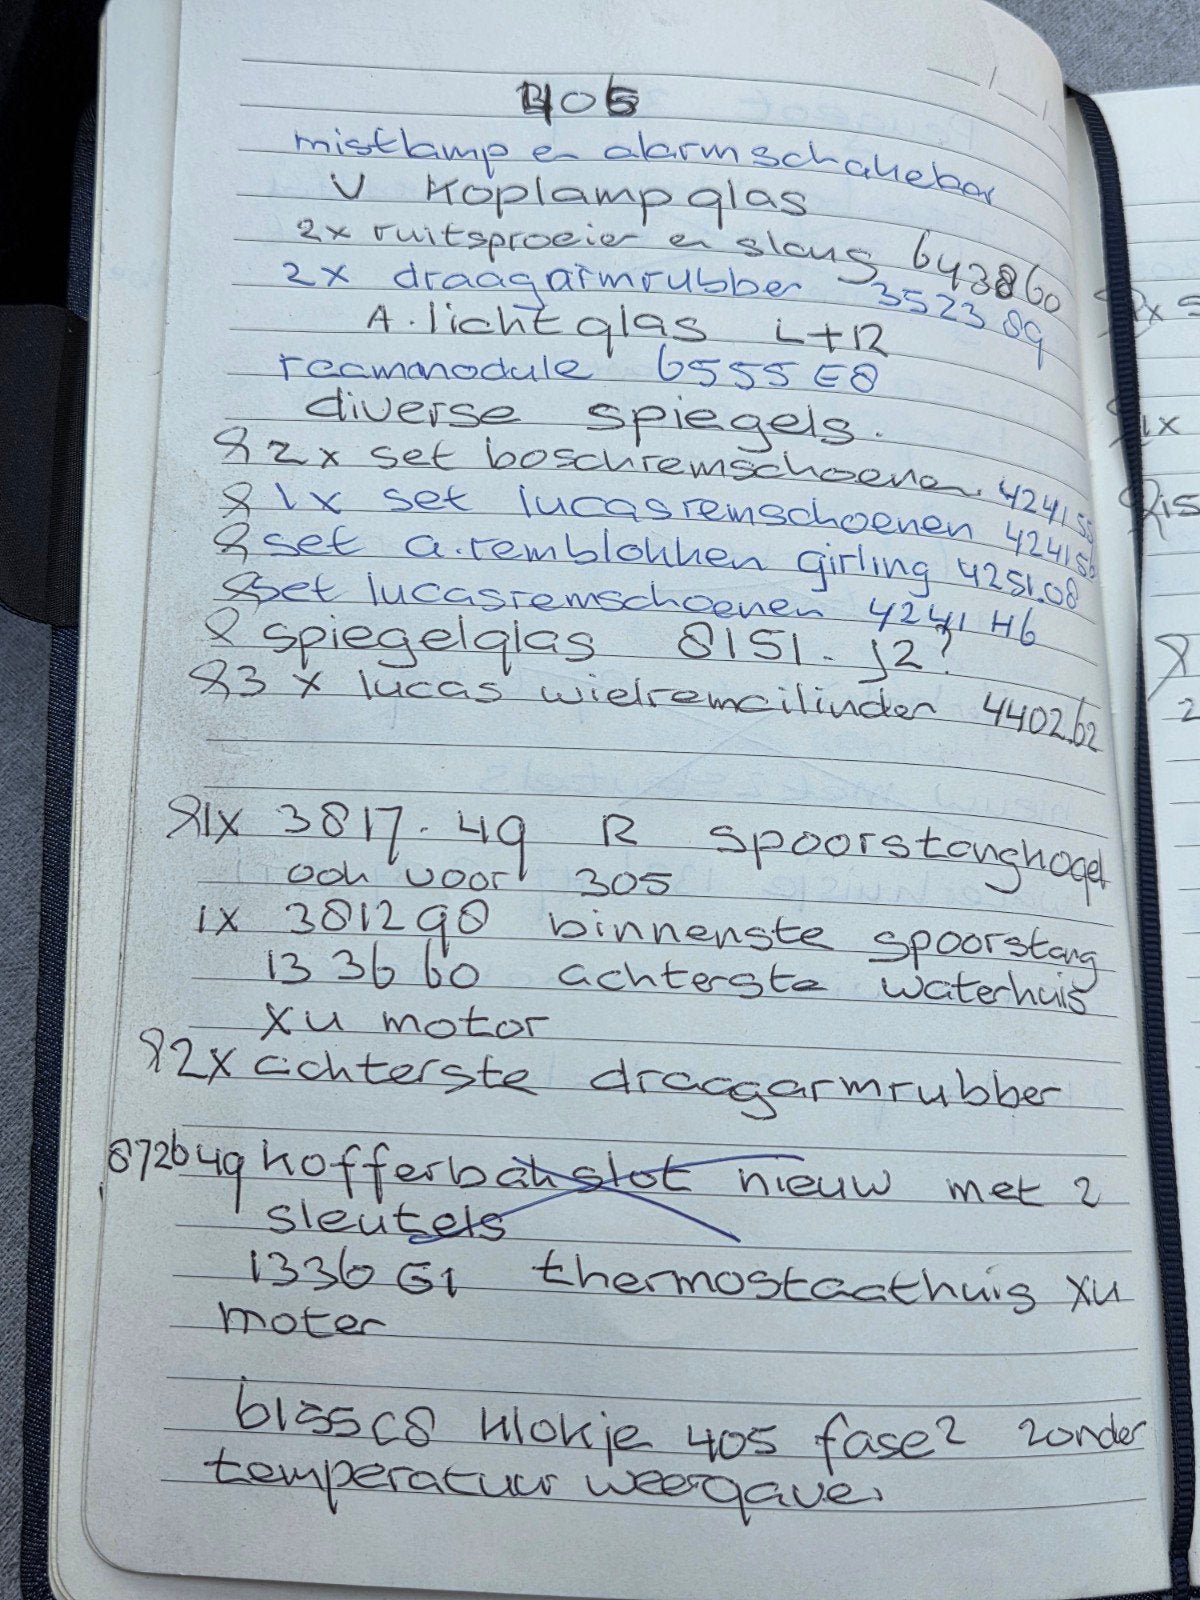 405
mistlamp en alarmschakelaar
V koplampglas
2x ruitsproeier en slang 643860
2x draagarmrubber 352389
A. lichtglas L+R
raammodule 6555E8
diverse spiegels.
2x set boschremschoenen 424155
1x set lucasremschoenen 424156
set a. remblokken girling 4251.08
set lucasremschoenen 4241 H6
spiegelglas 8151. j2?
3 x lucas wielremcilinder 4402.62
1x 3817.49 R spoorstangkogel
ook voor 305
1x 381298 binnenste spoorstang
133660 achterste waterhuis
XU motor
2x achterste draagarmrubber
872649 kofferbakslot nieuw met 2
sleutels
1336G1 thermostaathuis XU
moter
6155C8 klokje 405 fase2 zonder
temperatuur weergave.
2x
1x
1s
2